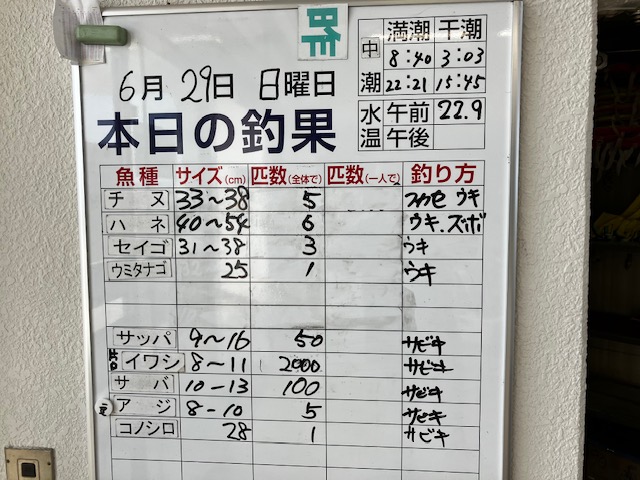 昨
満潮 干潮
中潮 8:40 3:03
22:21 15:45
水温 午前 22.9
午後
6月 29日 日曜日
本日の釣果
魚種 サイズ(cm) 匹数(全体で) 匹数(一人で) 釣り方
チヌ 33〜38 5 ウキ
ハネ 40〜54 6 ウキ.ズボ
セイゴ 31〜38 3 ウキ
ウミタナゴ 25 1 ウキ
サッパ 9〜16 50 サビキ
イワシ 8〜11 2000 サビキ
サバ 10-13 100 サビキ
アジ 8-10 5 サビキ
コノシロ 28 1 サビキ